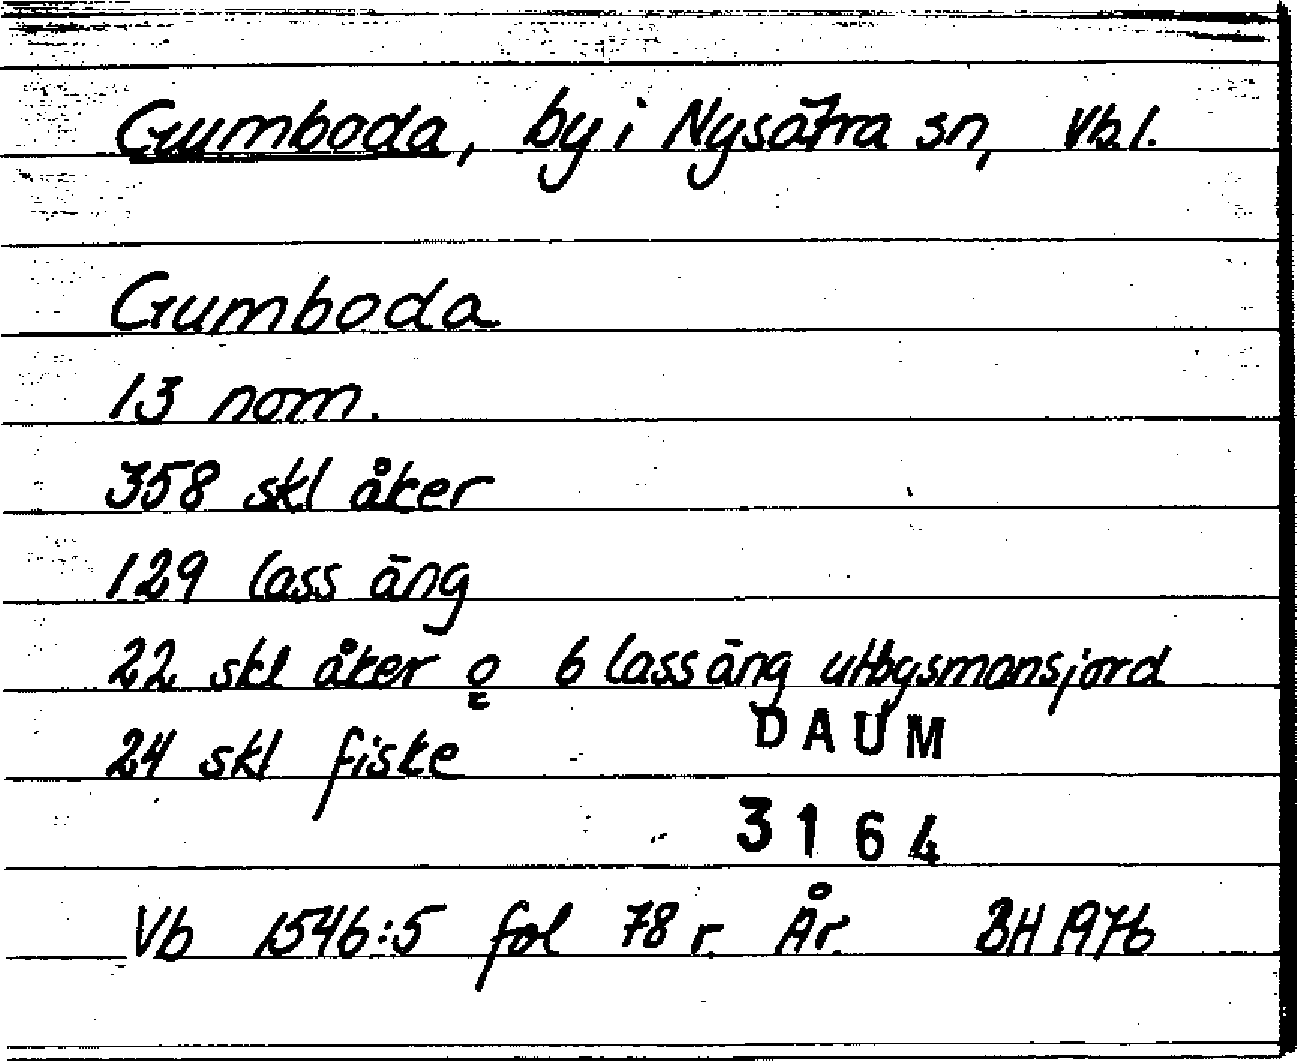 Gumboda, by i Nysätra sn, Vb.l.
Gumboda
13 nom.
358 skl åker
129 lass äng
22 skl åker o 6 lass äng utbysmansjord
24 skl fiske
DAUM
3164
Vb 1546:5 fol 78 r. År. BH 1976